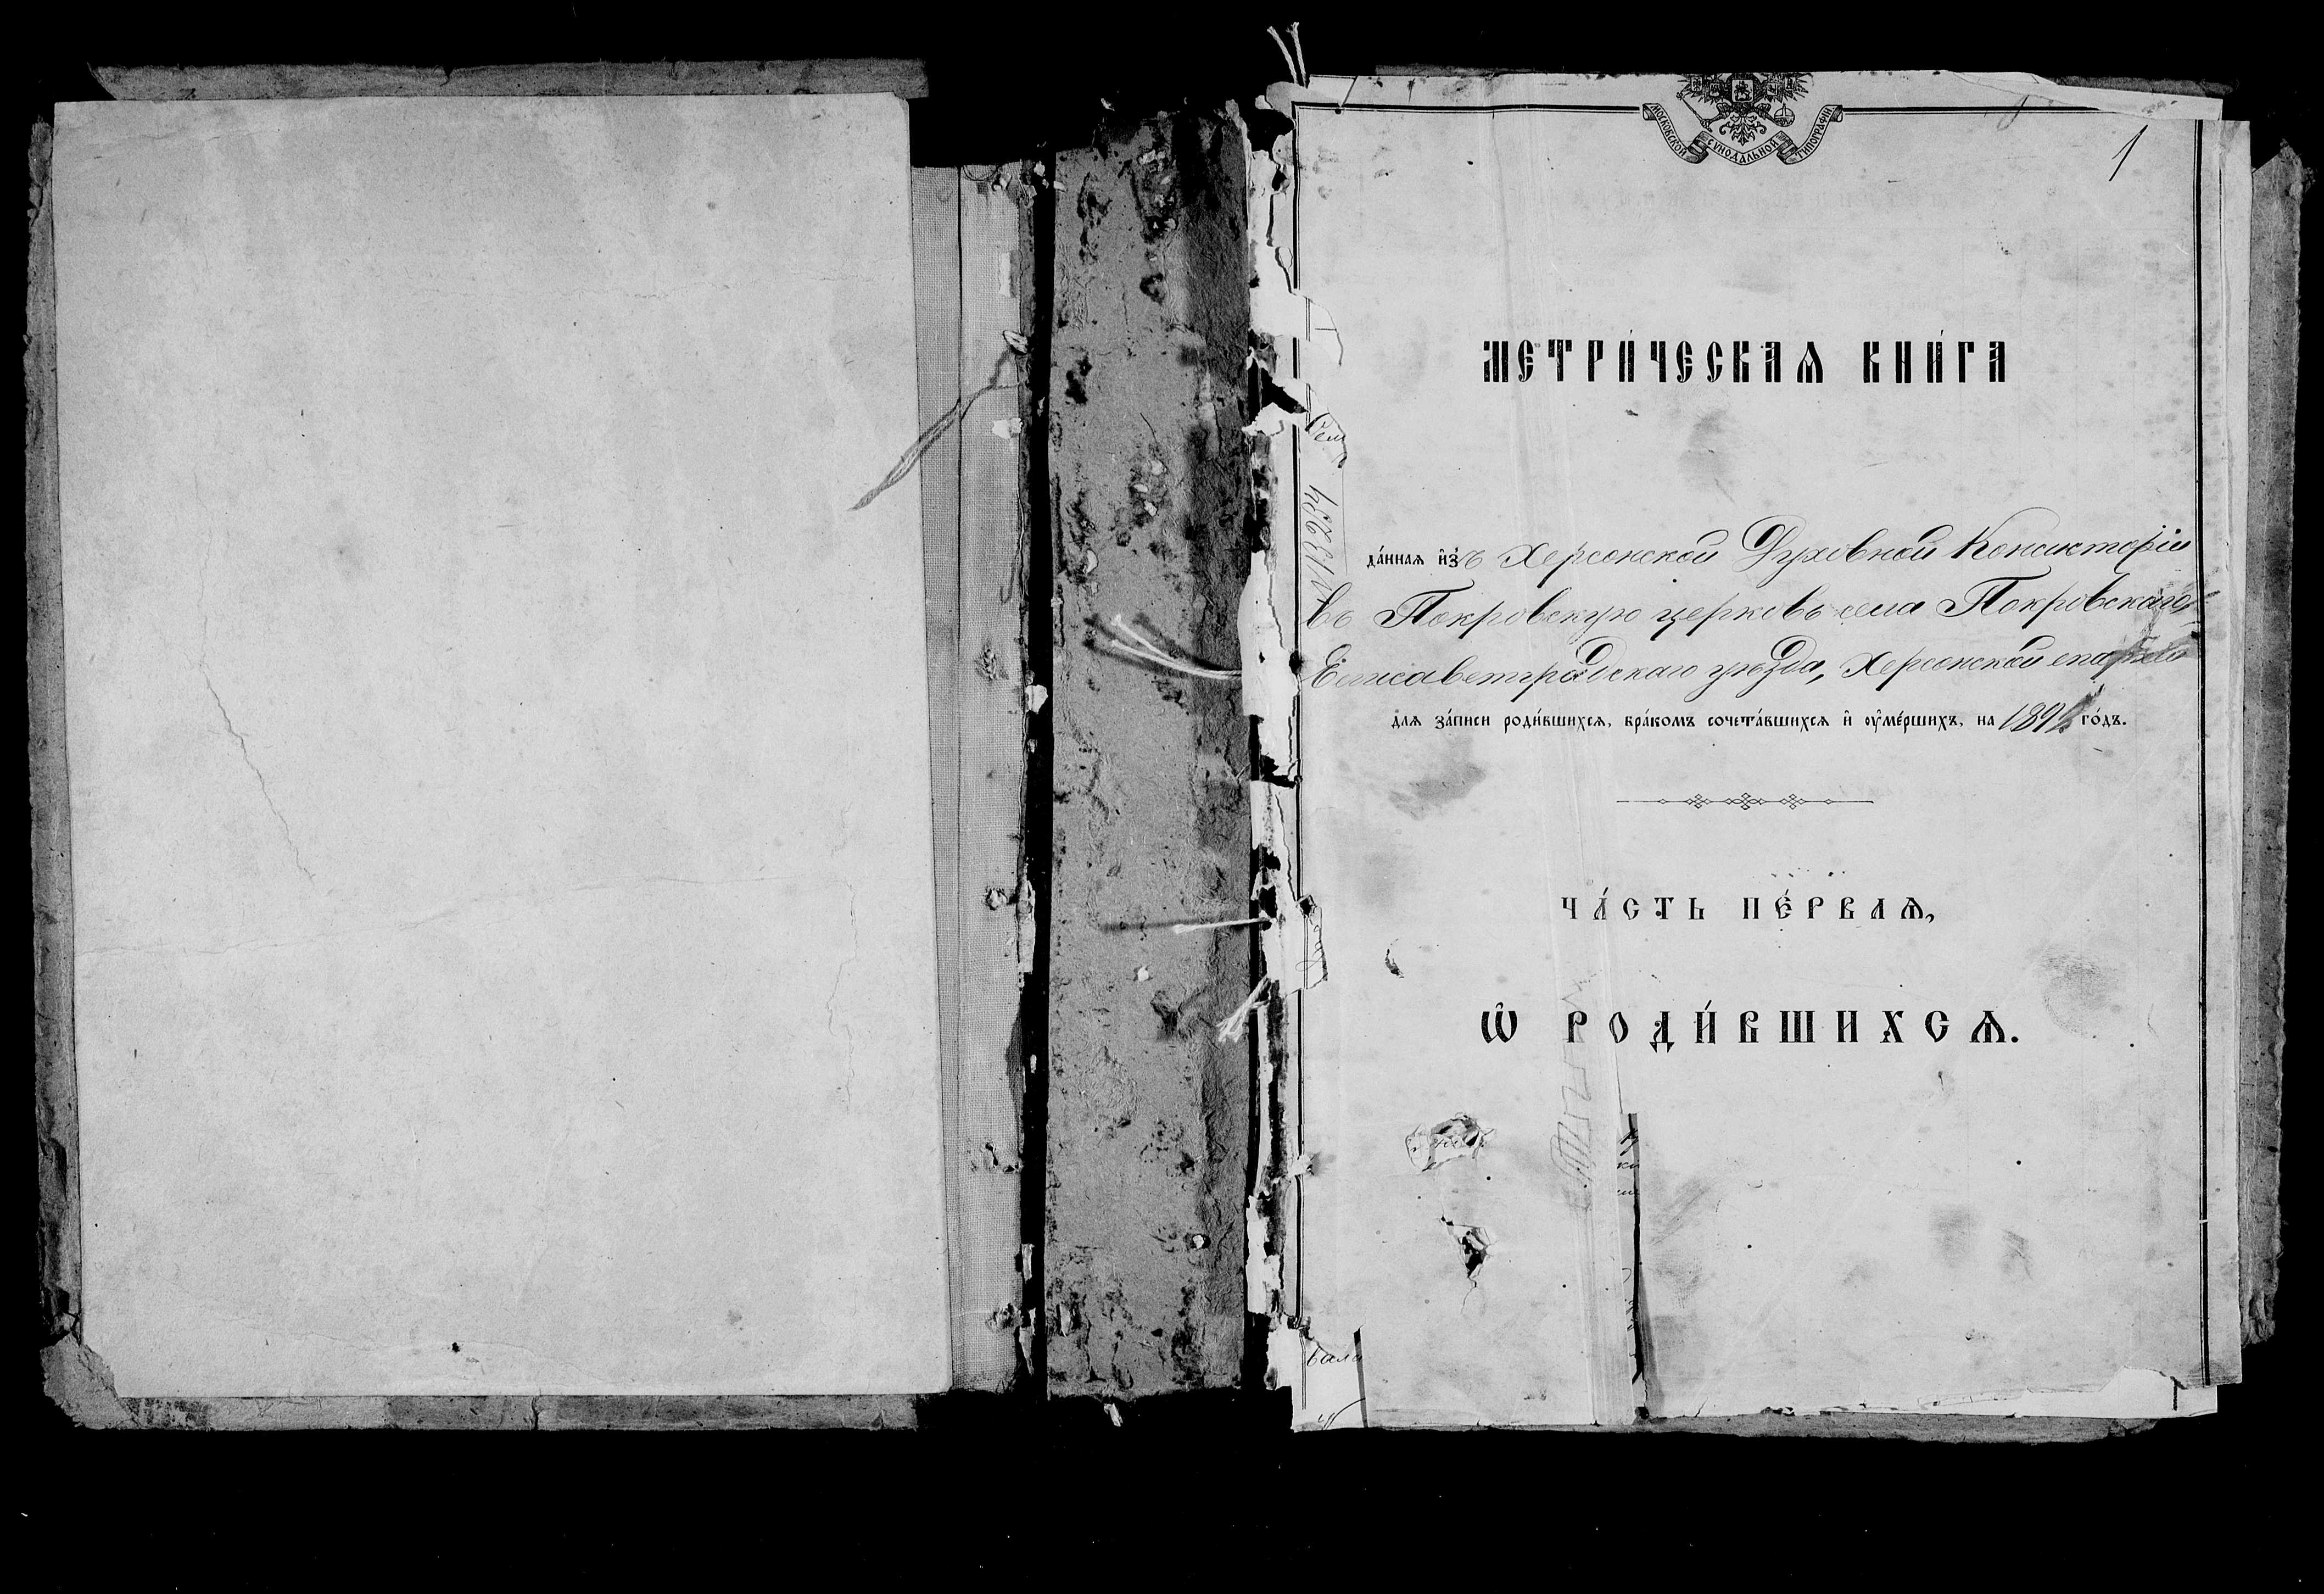 МОСКОВСКОЙ СѴНОДАЛЬНОЙ ТИПОГРАФІИ
1
МЕТРИ́ЧЕСКАѦ КНИ́ГА
да́ннаѧ и҆зъ Херсонской Духовной Консисторіи
въ Покровскую церковь села Покровскаго,
Елисаветградскаго уѣзда, Херсонской епархіи
длѧ за́писи роди́вшихсѧ, бра́комъ сочета́вшихсѧ и҆ ᲂу҆ме́ршихъ, на 189 го́дъ.
ЧА́СТЬ ПЕ́РВАѦ,
Ѡ҆ РОДИ́ВШИХСѦ.
вала